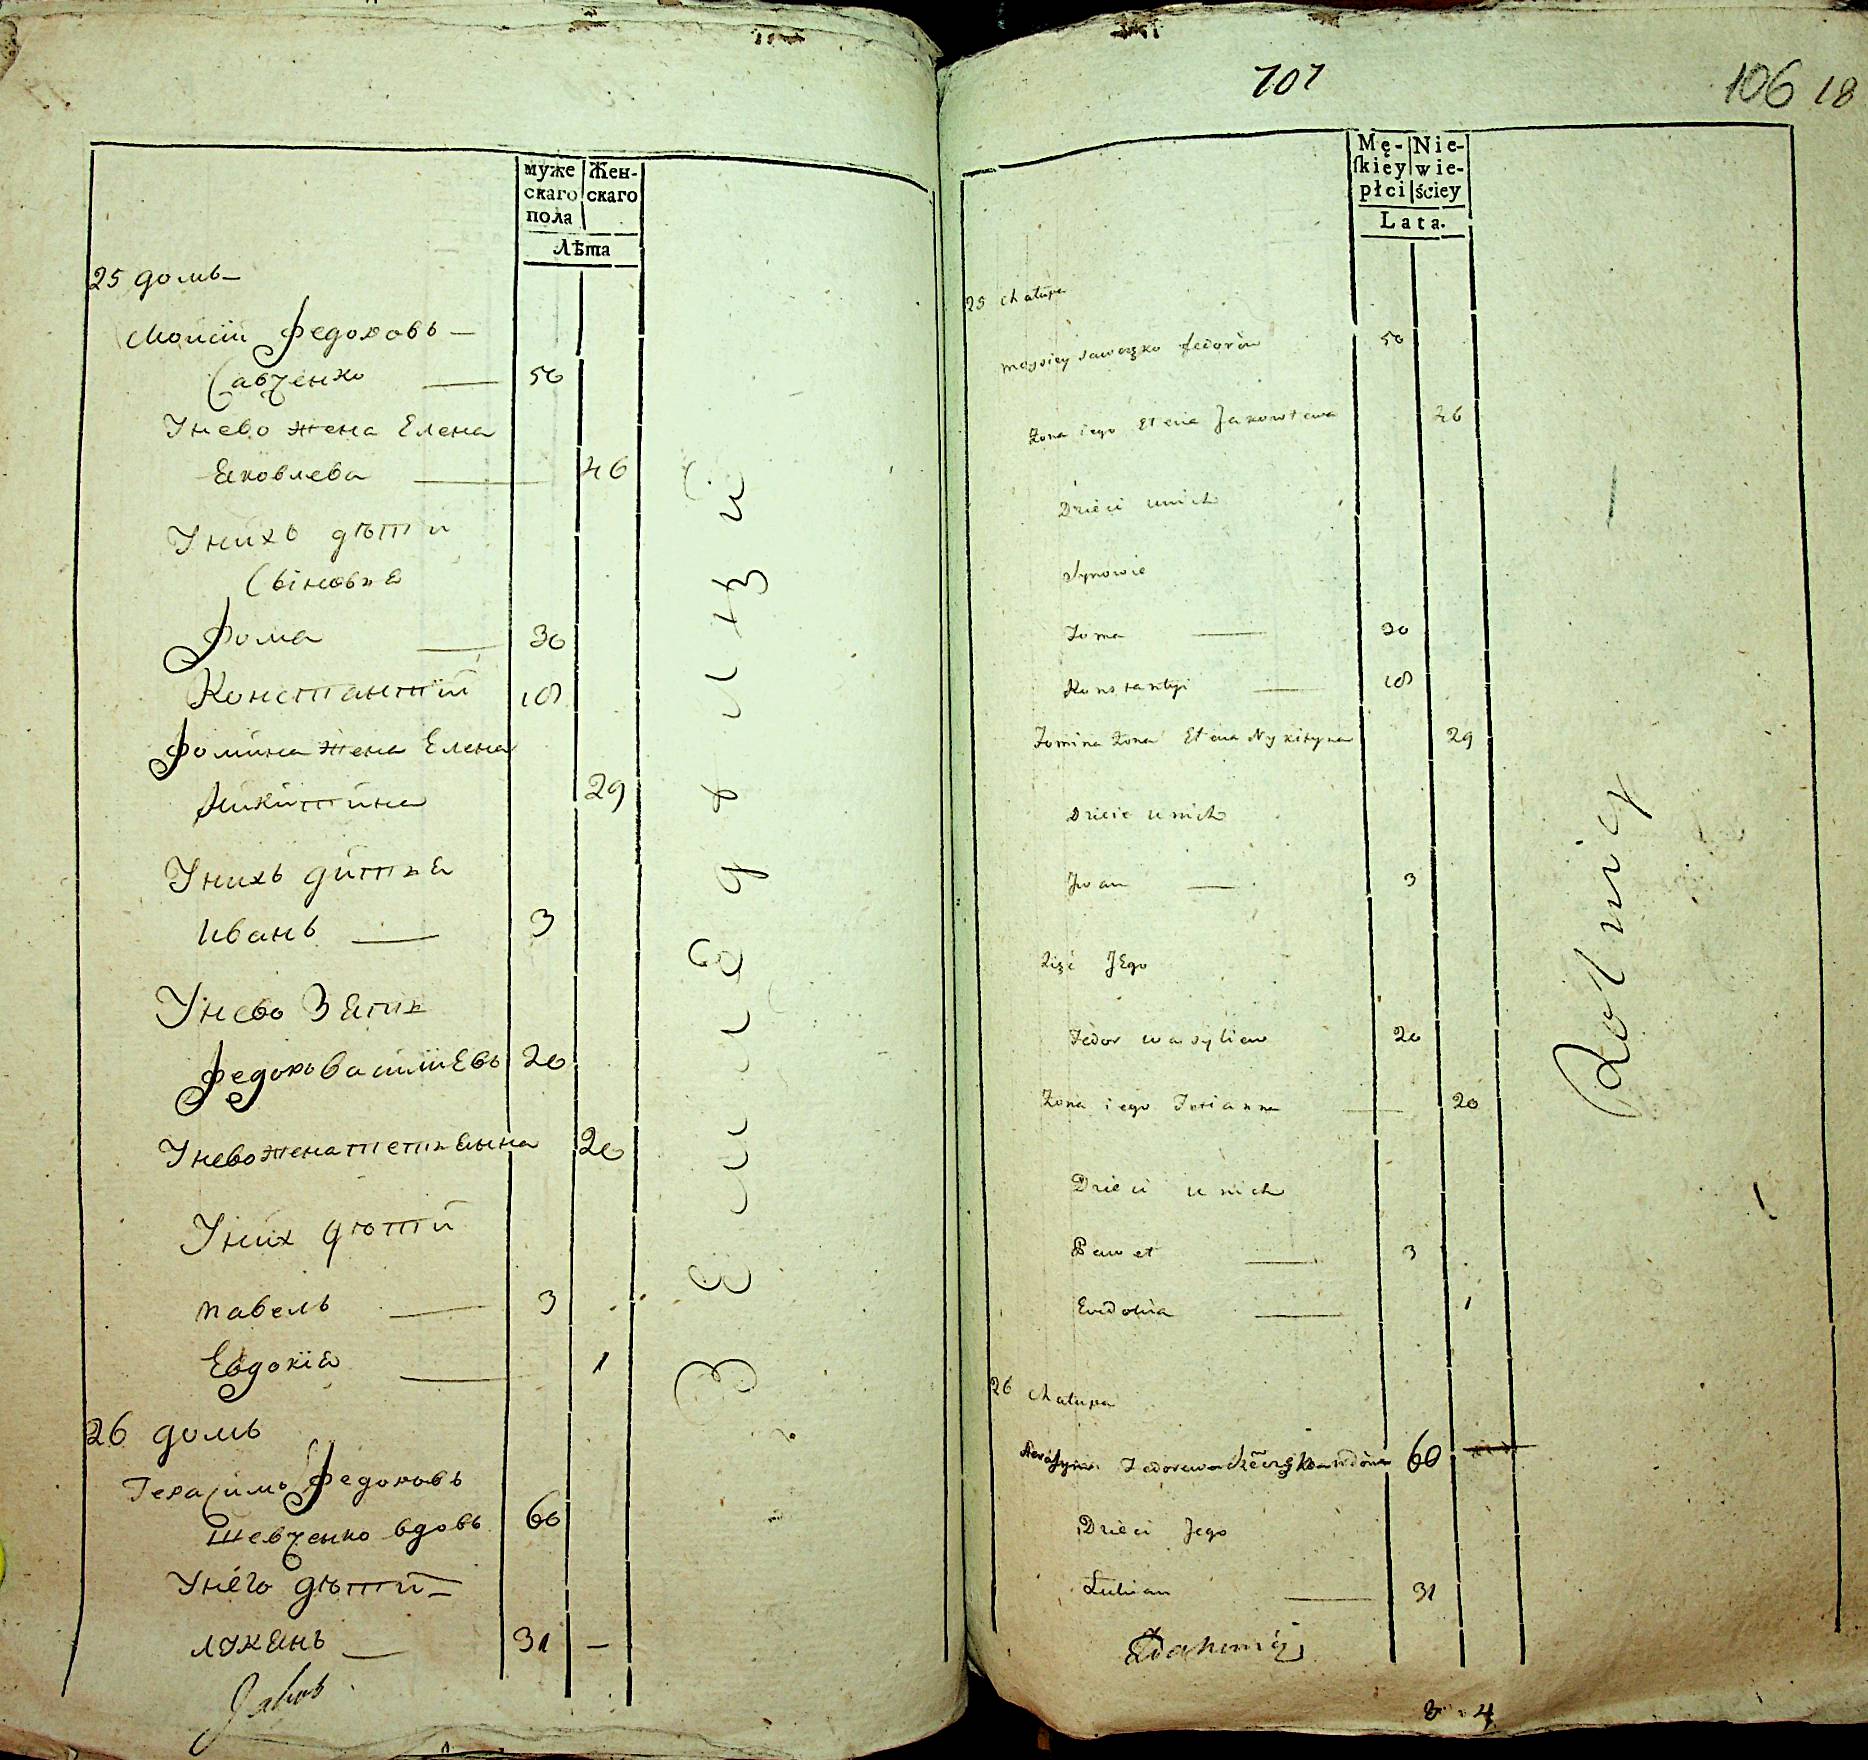 муже
скаго
пола
Жен-
скаго
Лѣта
25 домъ
Моисій Федоровъ
Савченко 50
Унево жена Елена
Яковлева 46
Унихъ дѣти
Сіновья
Фома 30
Константій 18
Фомина жена Елена
Никитина 29
Унихъ дитя
Иванъ 3
Унево Зять
Федоръ Василиевъ 20
Унево жена Тетяяна 20
Уних дѣти
Павелъ 3
Евдокія 1
26 домъ
Герасимъ Федоровъ
Шевченко вдовъ 60
Унего дѣти
Лукянъ 31
Земледѣлецъ
101
106 18
Mę-
skiey
płci
Nie-
wie-
ściey
Lata.
25 Chałupa
Moysiey Sawczęko Fedorów 50
Zona iego Elena Jakowlewa 46
Dzieci unich
Synowie
Foma 30
Konstantyi 18
Fomina Zona Elena Nykityna 29
Dziecie unich
Iwan 3
Zięć Jego
Fedor Wasyliew 20
Zona iego Tetianna 20
Dzieci unich
Paweł 3
Ewdokia 1
26 Chałupa
Herasym 60
Dzieci Jego
Lukian 31
Rolnicy